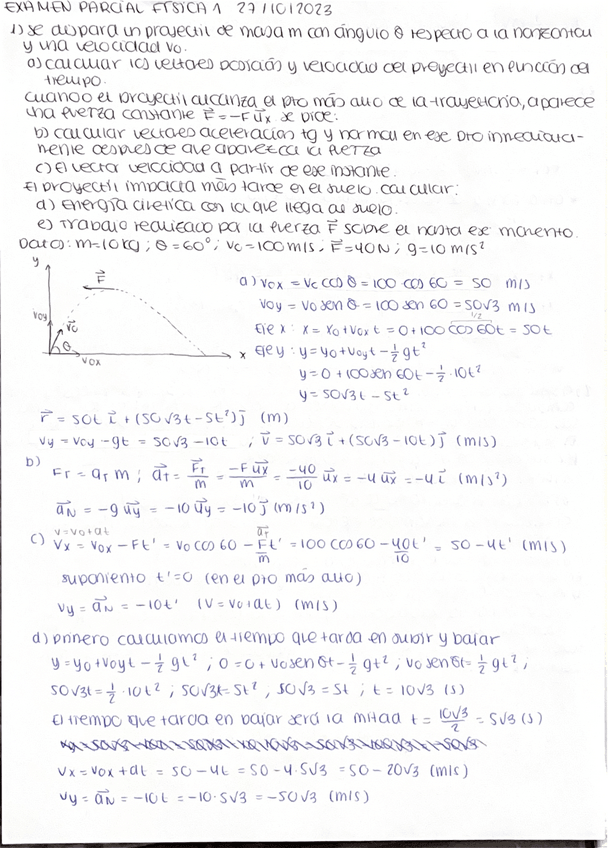 EXAMEN PARCIAL FÍSICA 1 27/10/2023
1) se dispara un proyectil de masa m con ángulo θ respecto a la horizontal
y una velocidad v0.
a) calcular los vectores posición y velocidad del proyectil en función del
tiempo.
cuando el proyectil alcanza el pto más alto de la trayectoria, aparece
una fuerza constante F⃗ = -F u⃗x se pide:
b) calcular vectores aceleración tg y normal en ese pto inmediata-
mente después de que aparezca la fuerza
c) El vector velocidad a partir de ese instante.
El proyectil impacta más tarde en el suelo. calcular:
d) Energía cinética con la que llega al suelo.
e) Trabajo realizado por la fuerza F⃗ sobre el hasta ese momento.
Datos: m=10kg ; θ=60° ; v0=100m/s ; F⃗=40N ; g=10m/s²
y
F⃗
v0y
v⃗0
θ
v0x
x
a) v0x = v0 cos θ = 100·cos 60 = 50 m/s
v0y = v0 sen θ = 100 sen 60 = 50√3 m/s
Eje x: x = x0 + v0x t = 0 + 100 cos 60t = 50t
1/2
Eje y: y = y0 + v0y t - 1/2 gt²
y = 0 + 100 sen 60t - 1/2 · 10t²
y = 50√3t - 5t²
r⃗ = 50t i⃗ + (50√3t - 5t²) j⃗ (m)
vy = v0y - gt = 50√3 - 10t ; v⃗ = 50√3 i⃗ + (50√3 - 10t) j⃗ (m/s)
b) FT = aT m ; a⃗T = F⃗T/m = -F u⃗x/m = -40/10 u⃗x = -4 u⃗x = -4 i⃗ (m/s²)
a⃗N = -g u⃗y = -10 u⃗y = -10 j⃗ (m/s²)
v = v0 + at
a⃗T
c) vx = v0x - Ft' = v0 cos 60 - Ft'/m = 100 cos 60 - 40t'/10 = 50 - 4t' (m/s)
suponiento t'=0 (en el pto más alto)
vy = a⃗N = -10t' (v = v0 + at) (m/s)
d) primero calculamos el tiempo que tarda en subir y bajar
y = y0 + v0y t - 1/2 gt² ; 0 = 0 + v0 sen θt - 1/2 gt² ; v0 sen θt = 1/2 gt² ;
50√3t = 1/2 · 10t² ; 50√3t = 5t² ; 50√3 = 5t ; t = 10√3 (s)
El tiempo que tarda en bajar será la mitad t = 10√3/2 = 5√3 (s)
vx = v0x + at = 50 - 4t = 50 - 4·5√3 = 50 - 20√3 (m/s)
vy = a⃗N = -10t = -10·5√3 = -50√3 (m/s)